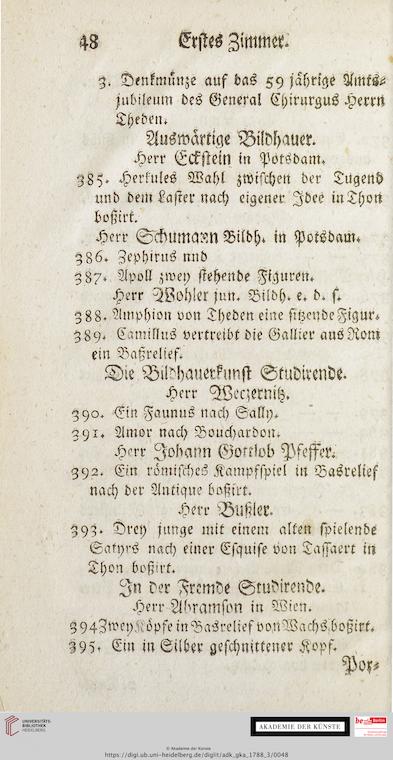 48 Erstes Zimmer.
3. Denkmünze auf das 59 jährige Amts-
jubileum des General Chirurgus Herrn
Theden.
Auswärtige Bildhauer.
Herr Eckstein in Potsdam.
385. Herkules Wahl zwischen der Tugend
und dem Laster nach eigener Idee in Thon
boßirt.
Herr Schumann Bildh. in Potsdam.
386. Zephirus und
387. Apoll zwey stehende Figuren.
Herr Wohler jun. Bildh. e. d. s.
388. Amphion von Theden eine sitzende Figur.
389. Camillus vertreibt die Gallier aus Rom
ein Baßrelief.
Die Bildhauerkunst Studirende.
Herr Weczernitz.
390. Ein Faunus nach Sally.
391. Amor nach Bouchardon.
Herr Johann Gottlob Pfeffer.
392. Ein römisches Kampfspiel in Basrelief
nach der Antique boßirt.
Herr Bußler.
393. Drey junge mit einem alten spielende
Satyrs nach einer Esquise von Tassaert in
Thon boßirt.
In der Fremde Studirende.
Herr Abramson in Wien.
394 Zwey Köpfe in Basrelief von Wachs boßirt.
395. Ein in Silber geschnittener Kopf.
Por-
UNIVERSITÄTS-
BIBLIOTHEK
HEIDELBERG
AKADEMIE DER KÜNSTE
be Berlin
© Akademie der Künste
https://digi.ub.uni-heidelberg.de/diglit/adk_gka_1788_3/0048